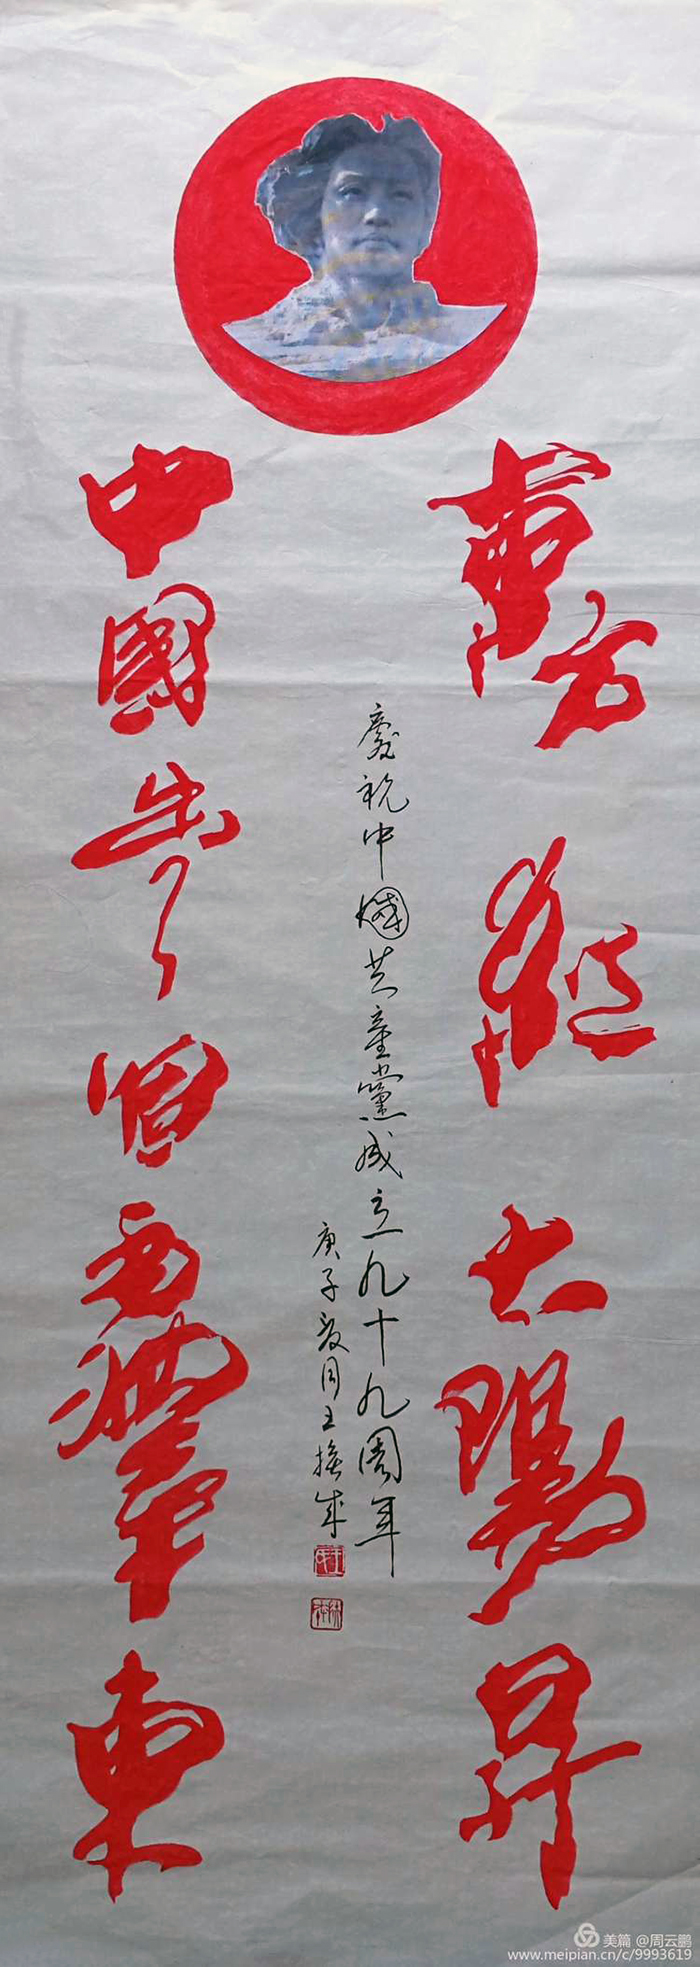 東方紅太陽昇
中國出了個毛澤東
慶祝中國共產黨成立九十九周年
庚子夏月王成
美篇 @周云鹏
www.meipian.cn/c/9993619